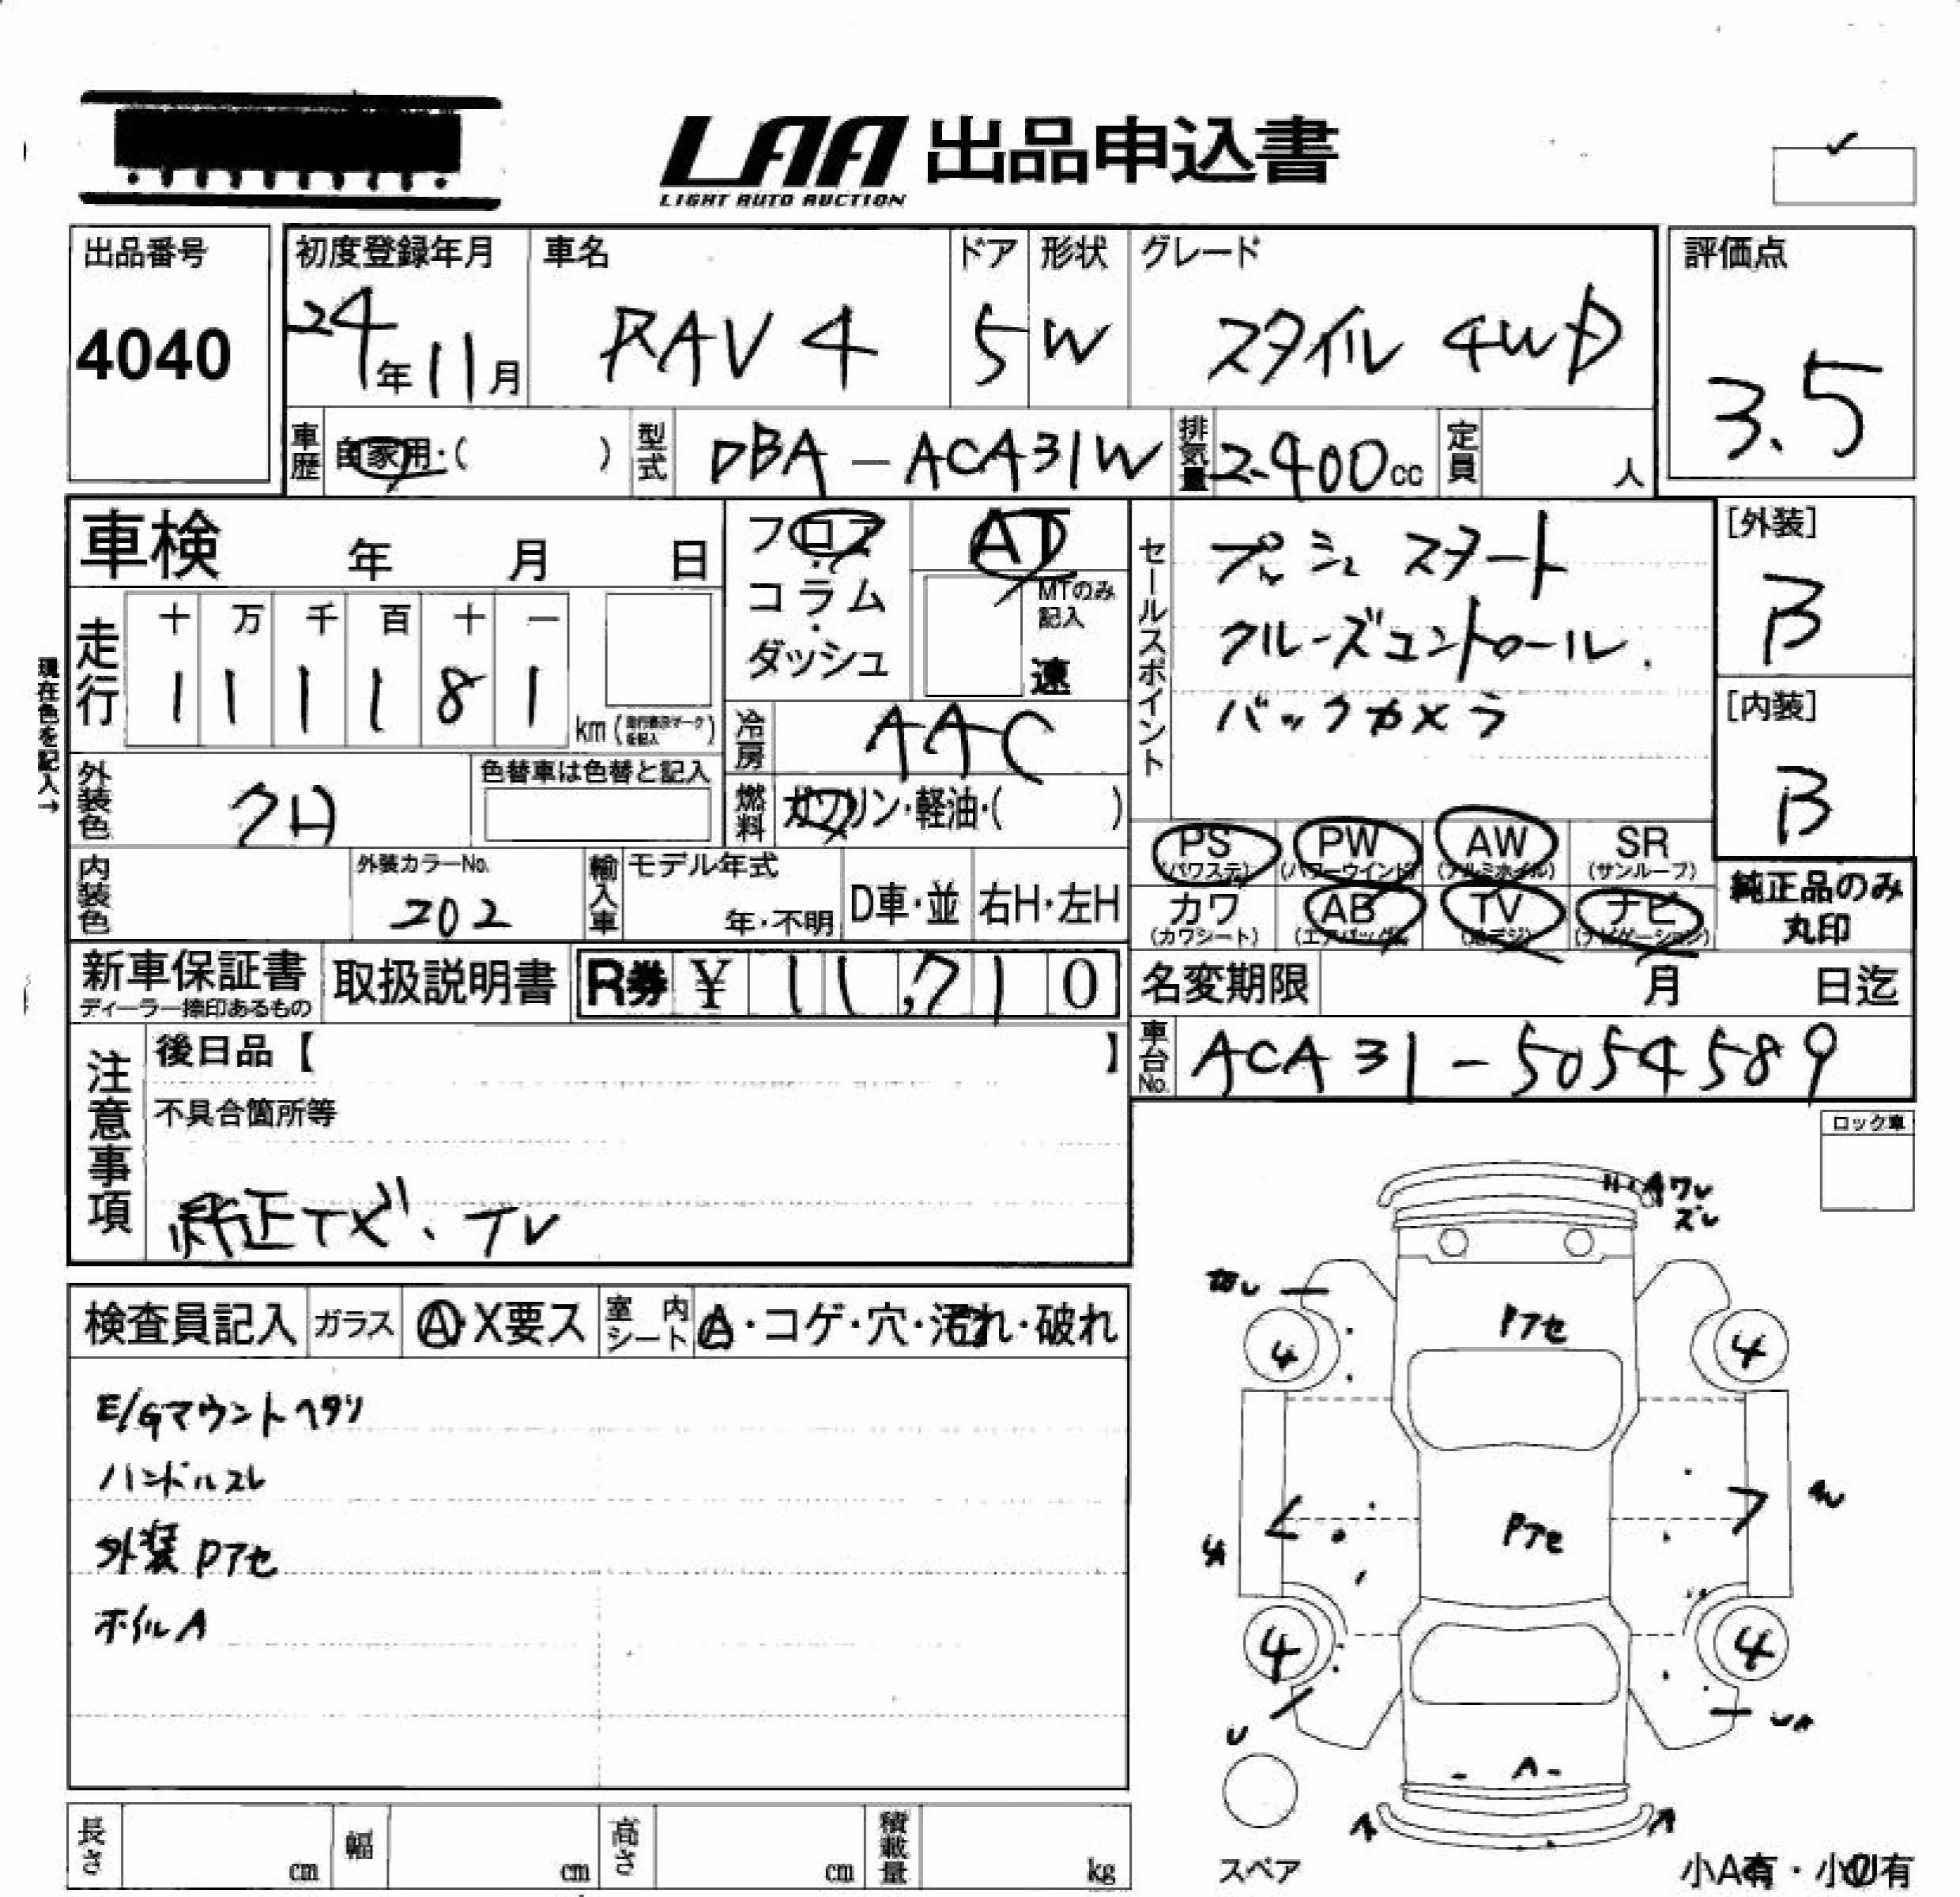 LAA 出品申込書
LIGHT AUTO AUCTION
出品番号
4040
初度登録年月
24年11月
車名
RAV4
ドア
5
形状
W
グレード
スタイル 4WD
評価点
3.5
車歴
自家用・( )
型式
DBA-ACA31W
排気量
2400cc
定員
人
車検 年 月 日
フロア
・
コラム
・
ダッシュ
AT
MTのみ
記入
速
セールスポイント
プッシュスタート
クルーズコントロール.
バックカメラ
[外装]
B
[内装]
B
現在色を記入→
走行
十 万 千 百 十 一
1 1 1 1 8 1
km
冷房
AAC
外装色
クロ
色替車は色替と記入
燃料
ガソリン・軽油・( )
PS
(パワステ)
PW
(パワーウインド)
AW
(アルミホイル)
SR
(サンルーフ)
内装色
外装カラーNo.
202
輸入車
モデル年式
年・不明
D車・並
右H・左H
カワ
(カワシート)
AB
(エアバック)
TV
(地デジ)
ナビ
(ナビゲーション)
純正品のみ
丸印
新車保証書
ディーラー捺印あるもの
取扱説明書
R券 ¥ 11,710
名変期限 月 日迄
注意事項
後日品【 】
不具合箇所等
純正ナビ、TV
車台No.
ACA31-5054589
ロック車
検査員記入
ガラス
A・X要ス
室内シート
A・コゲ・穴・汚れ・破れ
E/Gマウントヘタリ
ハンドルスレ
外装Pアセ
ホイルA
ワレ
ズレ
Pアセ
4
4
Pアセ
4
4
U
A
スペア
小A有・小U有
長さ
cm
幅
cm
高さ
cm
積載量
kg